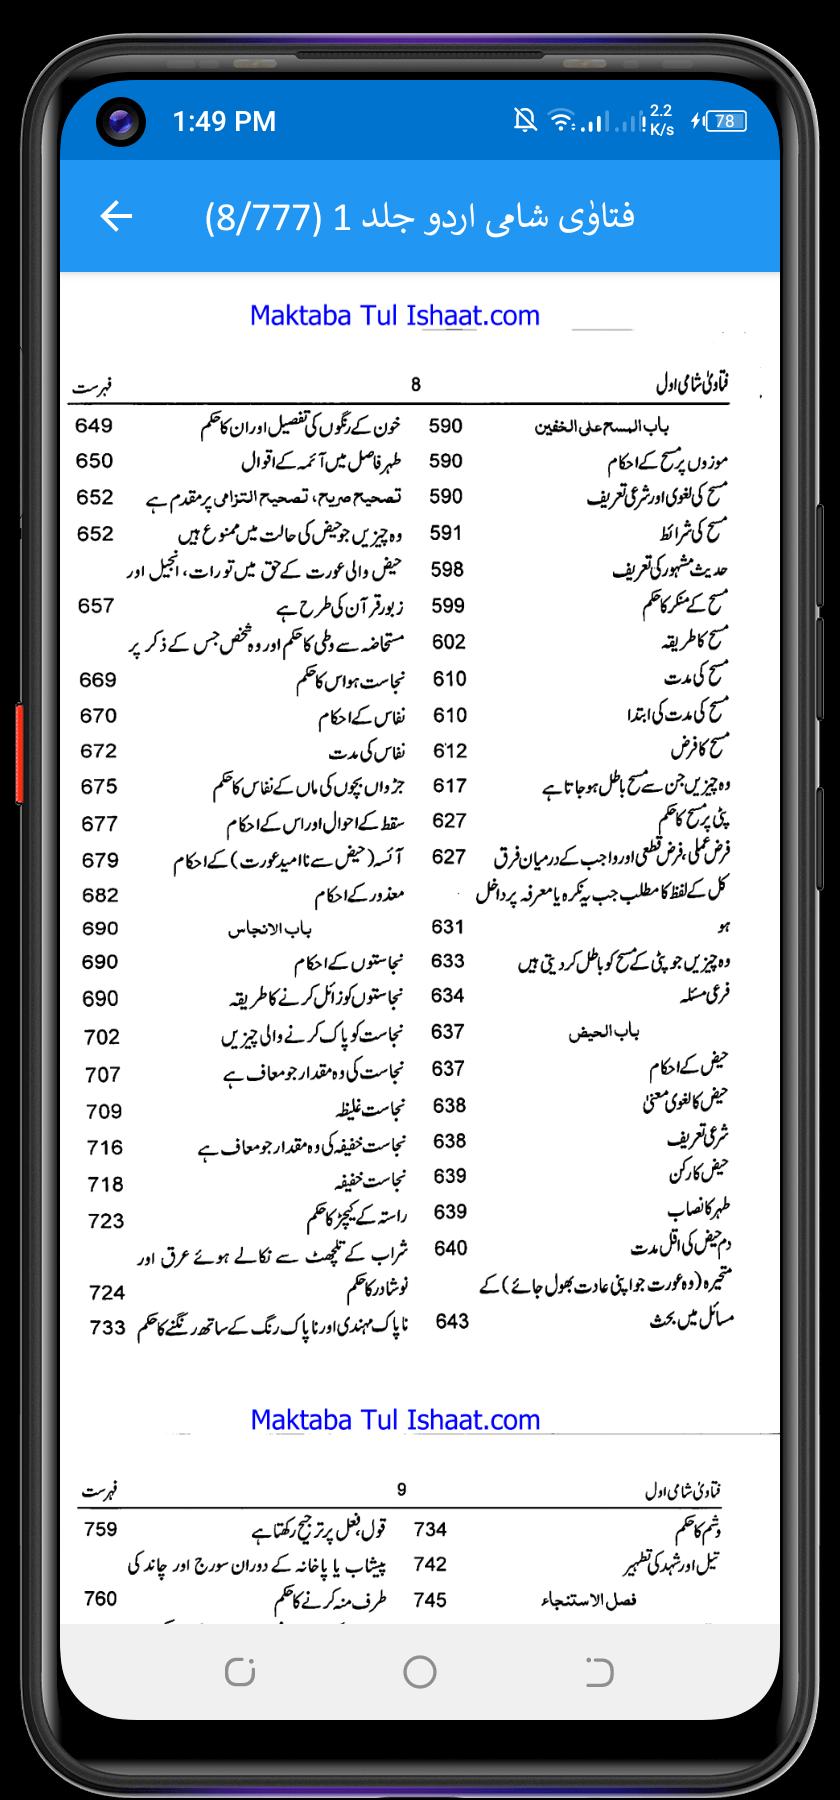 1:49 PM
2.2
K/s
78
فتاوٰی شامی اردو جلد 1 (8/777)
Maktaba Tul Ishaat.com
فتاویٰ شامی اول 8 فہرست
باب المسح علی الخفین 590
موزوں پر مسح کے احکام 590
مسح کی لغوی اور شرعی تعریف 590
مسح کی شرائط 591
حدیث مشہور کی تعریف 598
مسح کے منکر کا حکم 599
مسح کا طریقہ 602
مسح کی مدت 610
مسح کی مدت کی ابتدا 610
مسح کا فرض 612
وہ چیزیں جن سے مسح باطل ہو جاتا ہے 617
پٹی پر مسح کا حکم 627
فرض عملی، فرض قطعی اور واجب کے درمیان فرق 627
کل کے لفظ کا مطلب جب یہ نکرہ یا معرفہ پر داخل
ہو 631
وہ چیزیں جو پٹی کے مسح کو باطل کر دیتی ہیں 633
فرعی مسئلہ 634
باب الحیض 637
حیض کے احکام 637
حیض کا لغوی معنیٰ 638
شرعی تعریف 638
حیض کا رکن 639
طہر کا نصاب 639
دم حیض کی اقل مدت 640
متحیرہ (وہ عورت جو اپنی عادت بھول جائے) کے
مسائل میں بحث 643
خون کے رنگوں کی تفصیل اور ان کا حکم 649
طہر فاصل میں آئمہ کے اقوال 650
تصحیح صریح، تصحیح التزامی پر مقدم ہے 652
وہ چیزیں جو حیض کی حالت میں ممنوع ہیں 652
حیض والی عورت کے حق میں تورات، انجیل اور
زبور قرآن کی طرح ہے 657
مستحاضہ سے وطی کا حکم اور وہ شخص جس کے ذکر پر
نجاست ہو اس کا حکم 669
نفاس کے احکام 670
نفاس کی مدت 672
جڑواں بچوں کی ماں کے نفاس کا حکم 675
سقط کے احوال اور اس کے احکام 677
آئسہ (حیض سے ناامید عورت) کے احکام 679
معذور کے احکام 682
باب الانجاس 690
نجاستوں کے احکام 690
نجاستوں کو زائل کرنے کا طریقہ 690
نجاست کو پاک کرنے والی چیزیں 702
نجاست کی وہ مقدار جو معاف ہے 707
نجاست غلیظہ 709
نجاست خفیفہ کی وہ مقدار جو معاف ہے 716
نجاست خفیفہ 718
راستہ کے کیچڑ کا حکم 723
شراب کے تلچھٹ سے نکالے ہوئے عرق اور
نوشادر کا حکم 724
ناپاک مہندی اور ناپاک رنگ کے ساتھ رنگنے کا حکم 733
Maktaba Tul Ishaat.com
فتاویٰ شامی اول 9 فہرست
وشم کا حکم 734
تیل اور شہد کی تطہیر 742
فصل الاستنجاء 745
قول، فعل پر ترجیح رکھتا ہے 759
پیشاب یا پاخانہ کے دوران سورج اور چاند کی
طرف منہ کرنے کا حکم 760